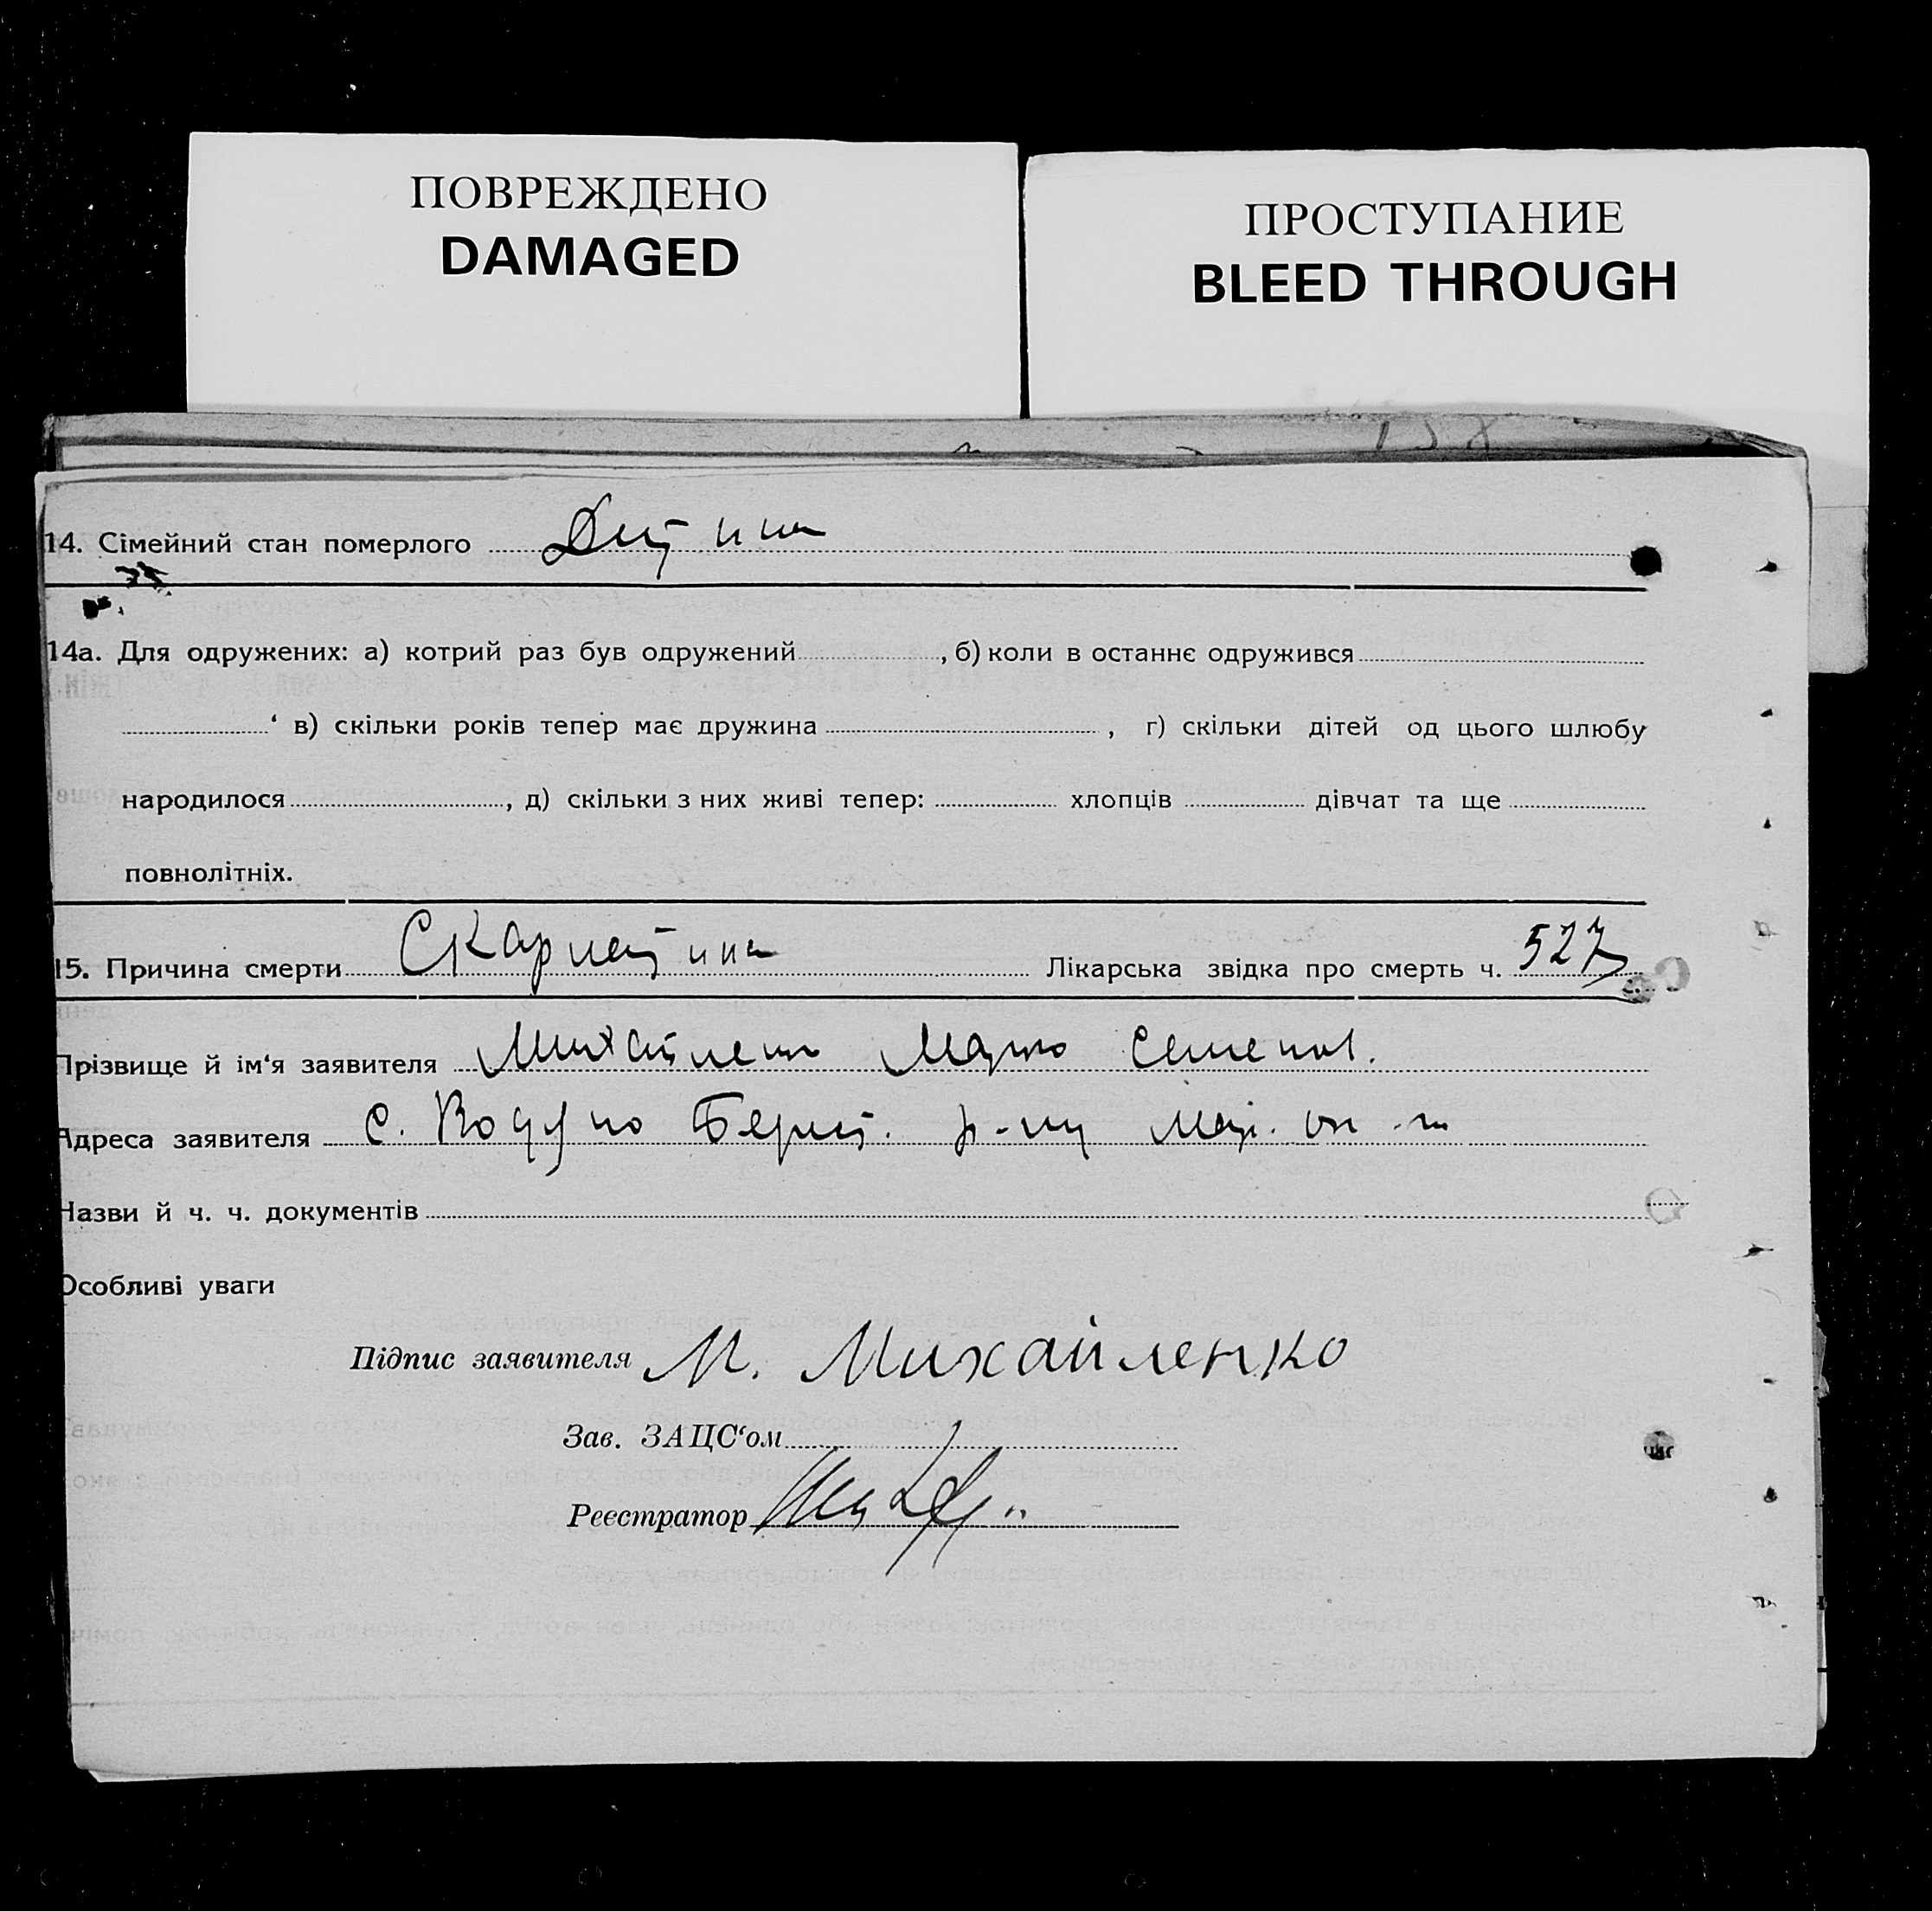 ПОВРЕЖДЕНО
DAMAGED
ПРОСТУПАНИЕ
BLEED THROUGH
14. Сімейний стан померлого Дитина
14а. Для одружених: а) котрий раз був одружений , б) коли в останнє одружився
‘ в) скільки років тепер має дружина , г) скільки дітей од цього шлюбу
народилося , д) скільки з них живі тепер: хлопців дівчат та ще
повнолітніх.
15. Причина смерти Скарлятина Лікарська звідка про смерть ч. 527
Прізвище й ім‘я заявителя Михайленко Марко Семенов.
Адреса заявителя с. р-ну
Назви й ч. ч. документів
Особливі уваги
Підпис заявителя М. Михайленко
Зав. ЗАЦС‘ом
Реєстратор